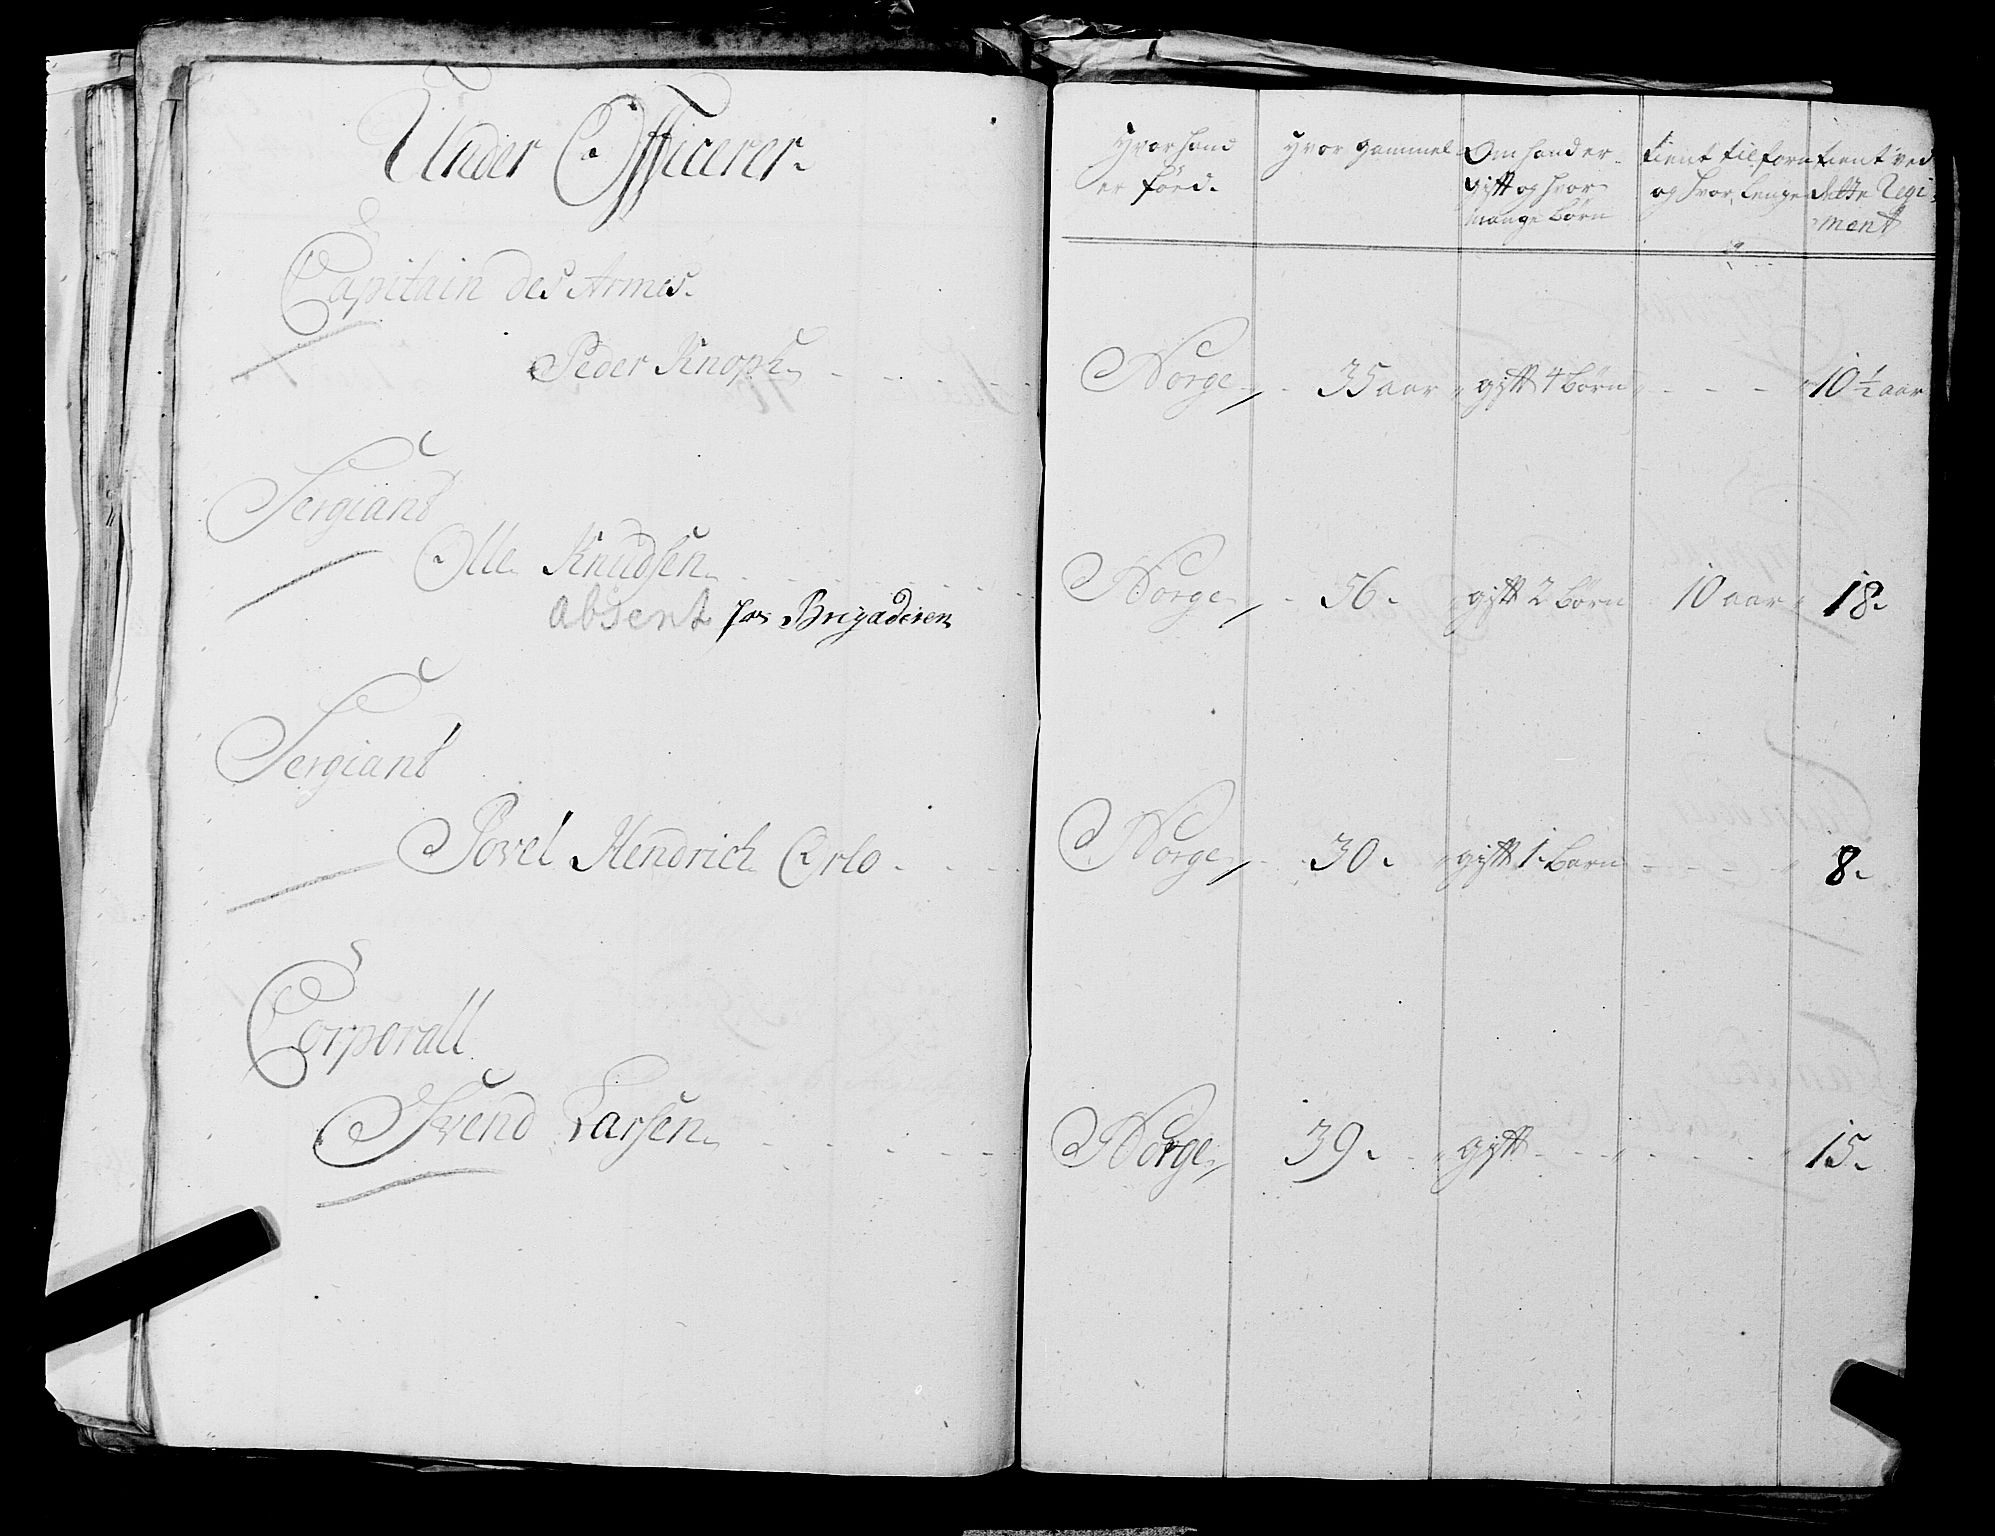 Under Officerer.
Capitain des Armes.
Peder Knoph
Sergiant
Olle Knudsen
absent hos Brigaderen
Sergiant
Povel Hendrich Orlo
Corporall
Svend Larsen
Hvor hand er föed.
Hvor gammel
Om hand er gift og hvor mange börn
tient tilforn og hvor lenge
tient ved dette Regiment
Norge 35 aar gift 4 börn 10 1/2 aar
Norge 56. gift 2 börn 10 aar 18.
Norge 30. gift 1. barn 8.
Norge 39. gift 15.